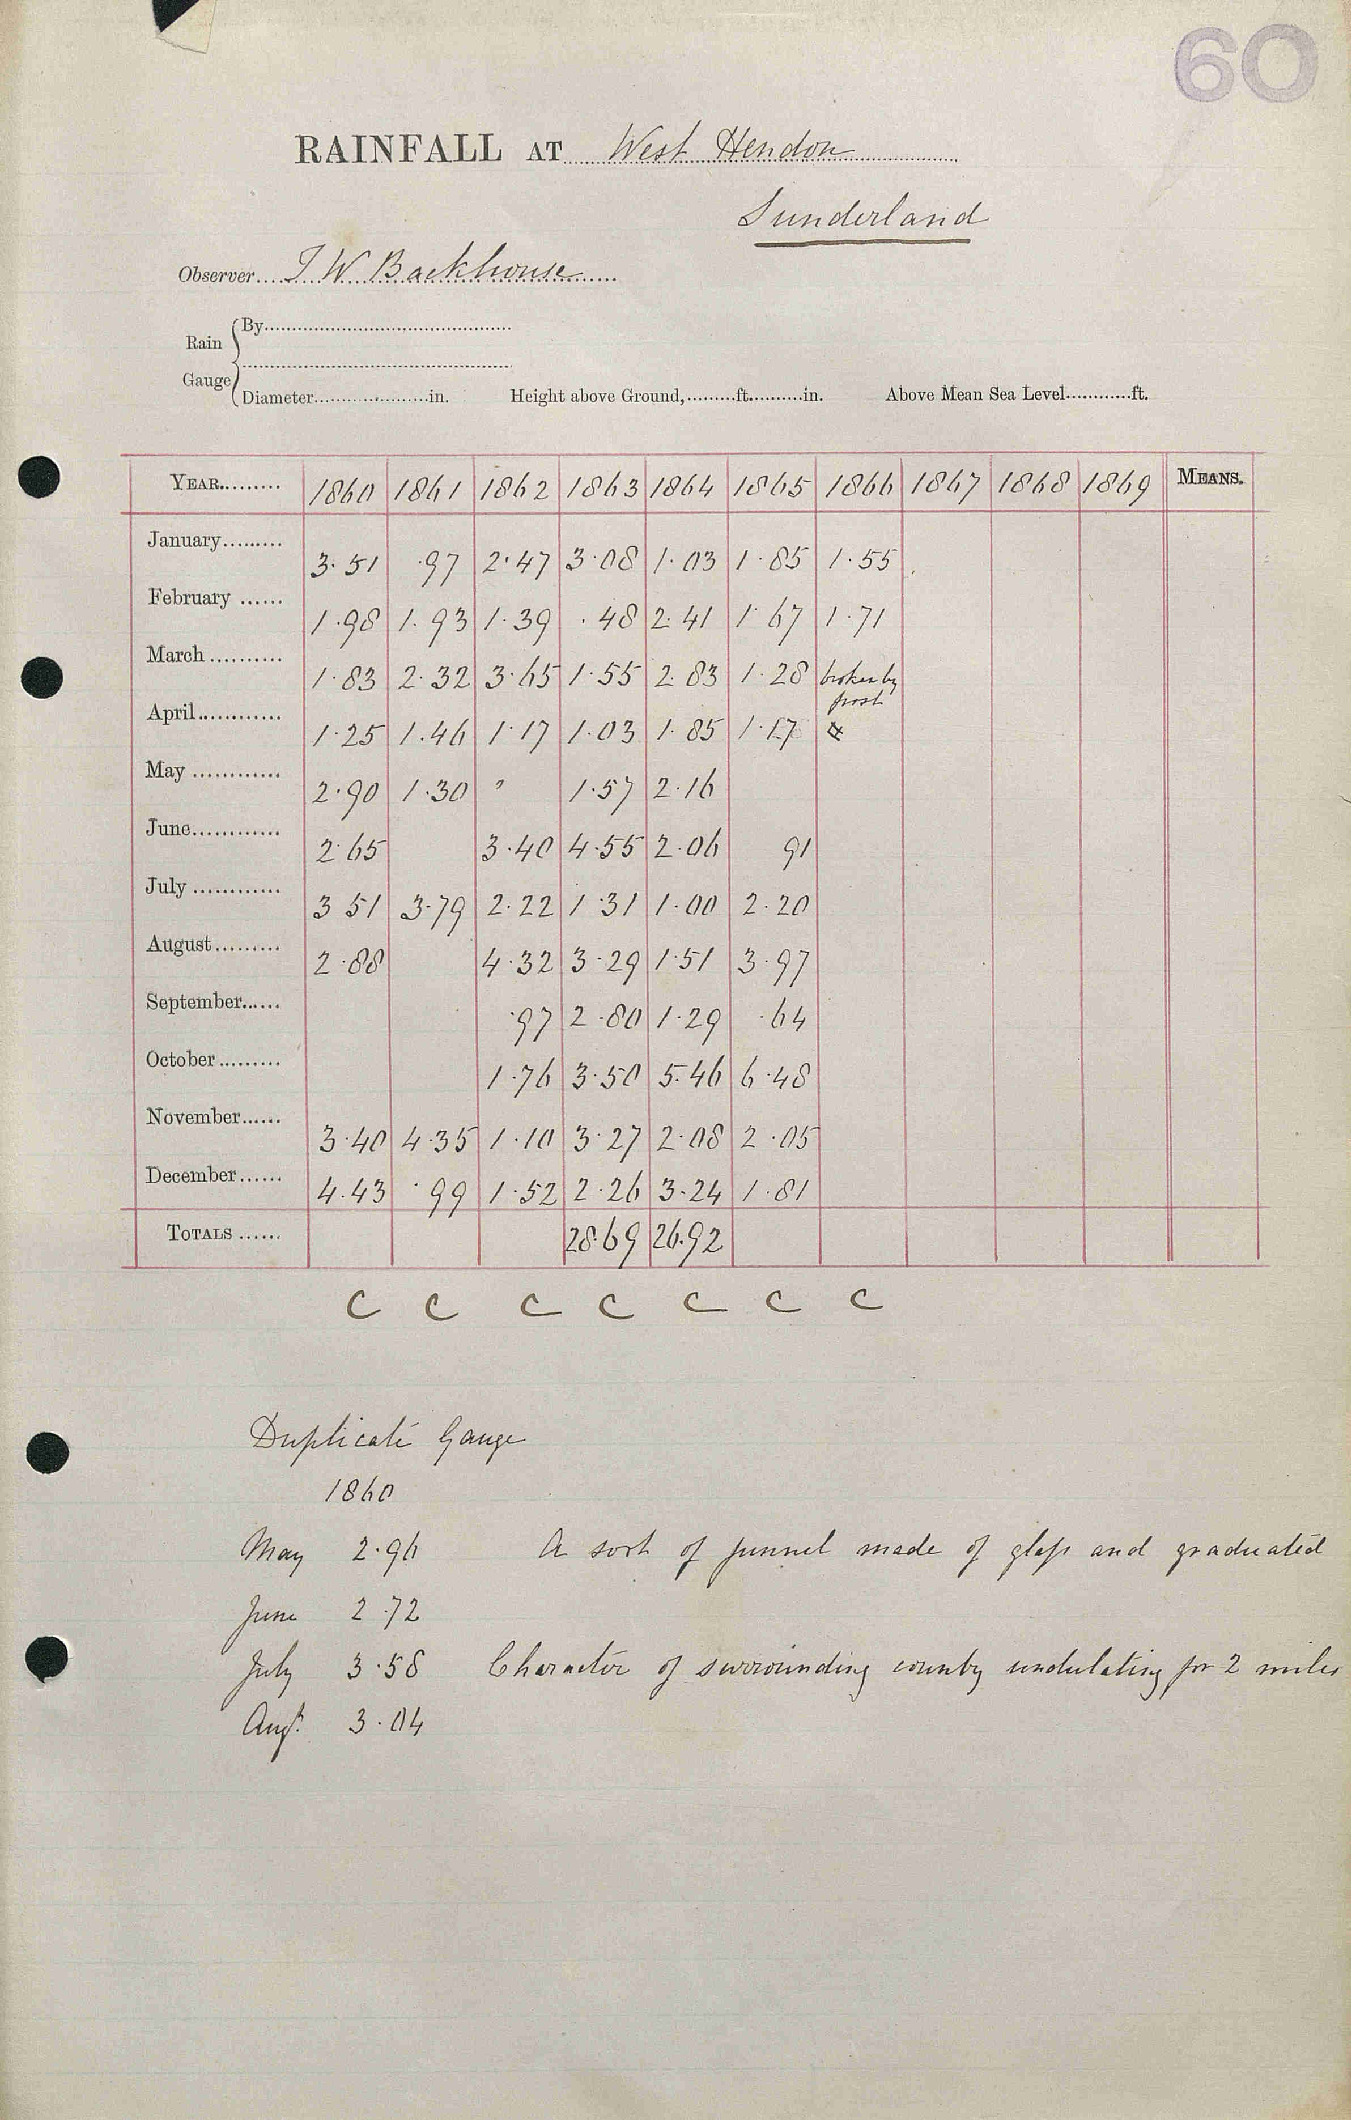 60
RAINFALL AT West Hendon
Sunderland
Observer.... T W Backhouse
Rain Gauge { By
Diameter in. Height above Ground, ft. in. Above Mean Sea Level ft.
YEAR 1860 1861 1862 1863 1864 1865 1866 1867 1868 1869 MEANS.
January 3.51 .97 2.47 3.08 1.03 1.85 1.55
February 1.98 1.93 1.39 .48 2.41 1.67 1.71
March 1.83 2.32 3.65 1.55 2.83 1.28 broken by frost
April 1.25 1.46 1.17 1.03 1.85 1.17
May 2.90 1.30 " 1.57 2.16
June 2.65 3.40 4.55 2.06 91
July 3 51 3.79 2.22 1.31 1.00 2.20
August 2.88 4.32 3.29 1.51 3.97
September .97 2.80 1.29 .64
October 1.76 3.50 5.46 6.48
November 3.40 4.35 1.10 3.27 2.08 2.05
December 4.43 .99 1.52 2.26 3.24 1.81
TOTALS 28.69 26.92
C C C C C C C
Duplicate Gauge
1860
May 2.96 A sort of funnel made of glass and graduated
June 2.72
July 3.58 Character of surrounding country undulating for 2 miles
Augt. 3.04